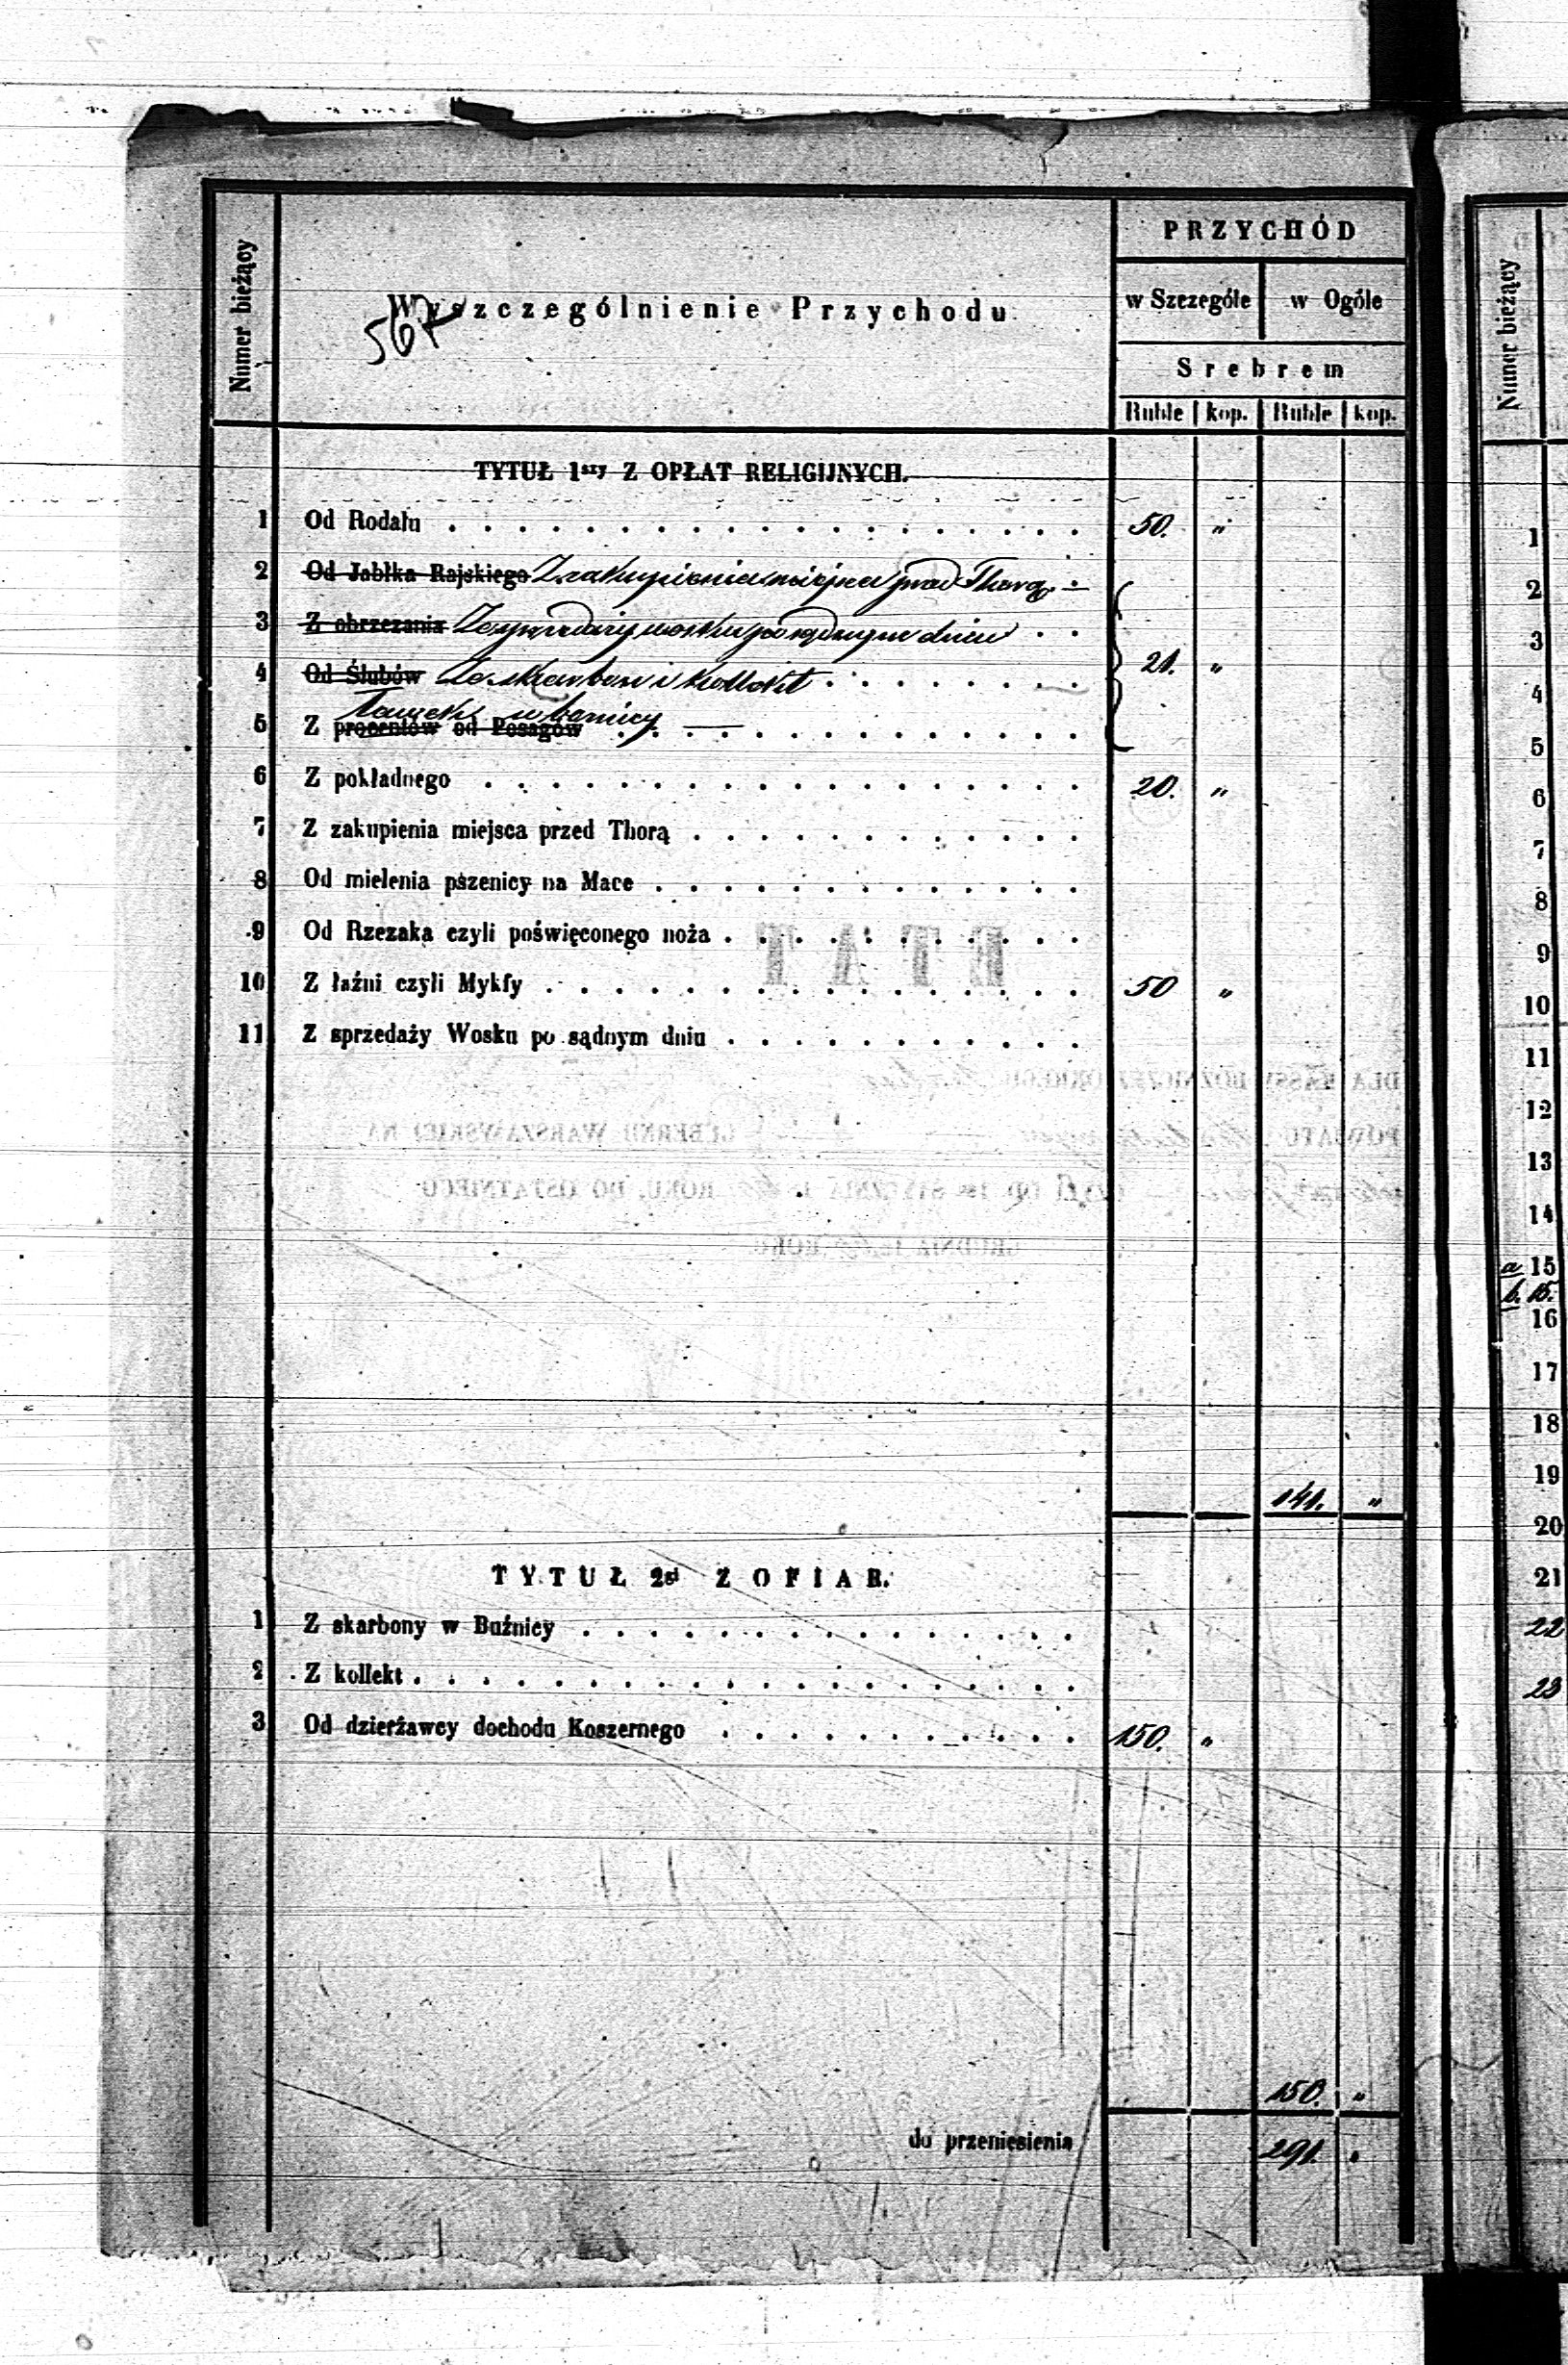 PRZYCHÓD
Numer bieżący
Wyszczególnienie Przychodu
567
w Szczególe w Ogóle
Srebrem
Ruble kop. Ruble kop.
TYTUŁ 1szy Z OPŁAT RELIGIJNYCH.
1 Od Rodału . . . . . . . . . . . . . . . . . . . 50. „
2 Od Jabłka Rajskiego Z zakupienia miejsca przed Thorą
3 Z obrzezania Ze sprzedaży wosku po sądnym dniu
4 Od Ślubów Ze skarbon i kollekt . . . . . . . . 21. „
Ławek w
5 Z procentów od Posagów . . . . . . . . . . . . .
6 Z pokładnego . . . . . . . . . . . . . . . . . . 20. „
7 Z zakupienia miejsca przed Thorą . . . . . . . . . . . .
8 Od mielenia pszenicy na Mace . . . . . . . . . . . . .
9 Od Rzezaka czyli poświęconego noża . . . . . . . . . . .
10 Z łaźni czyli Mykfy . . . . . . . . . . . . . . . . 50 „
11 Z sprzedaży Wosku po sądnym dniu . . . . . . . . . . .
141. „
TYTUŁ 2gi Z OFIAR.
1 Z skarbony w Buźnicy . . . . . . . . . . . . . . .
2 Z kollekt . . . . . . . . . . . . . . . . . . . .
3 Od dzierżawcy dochodu Koszernego . . . . . . . . . . . 150. „
150. „
do przeniesienia 291. „
Numer bieżący
1
2
3
4
5
6
7
8
9
10
11
12
13
14
a 15
b. 15.
16
17
18
19
20
21
22
23